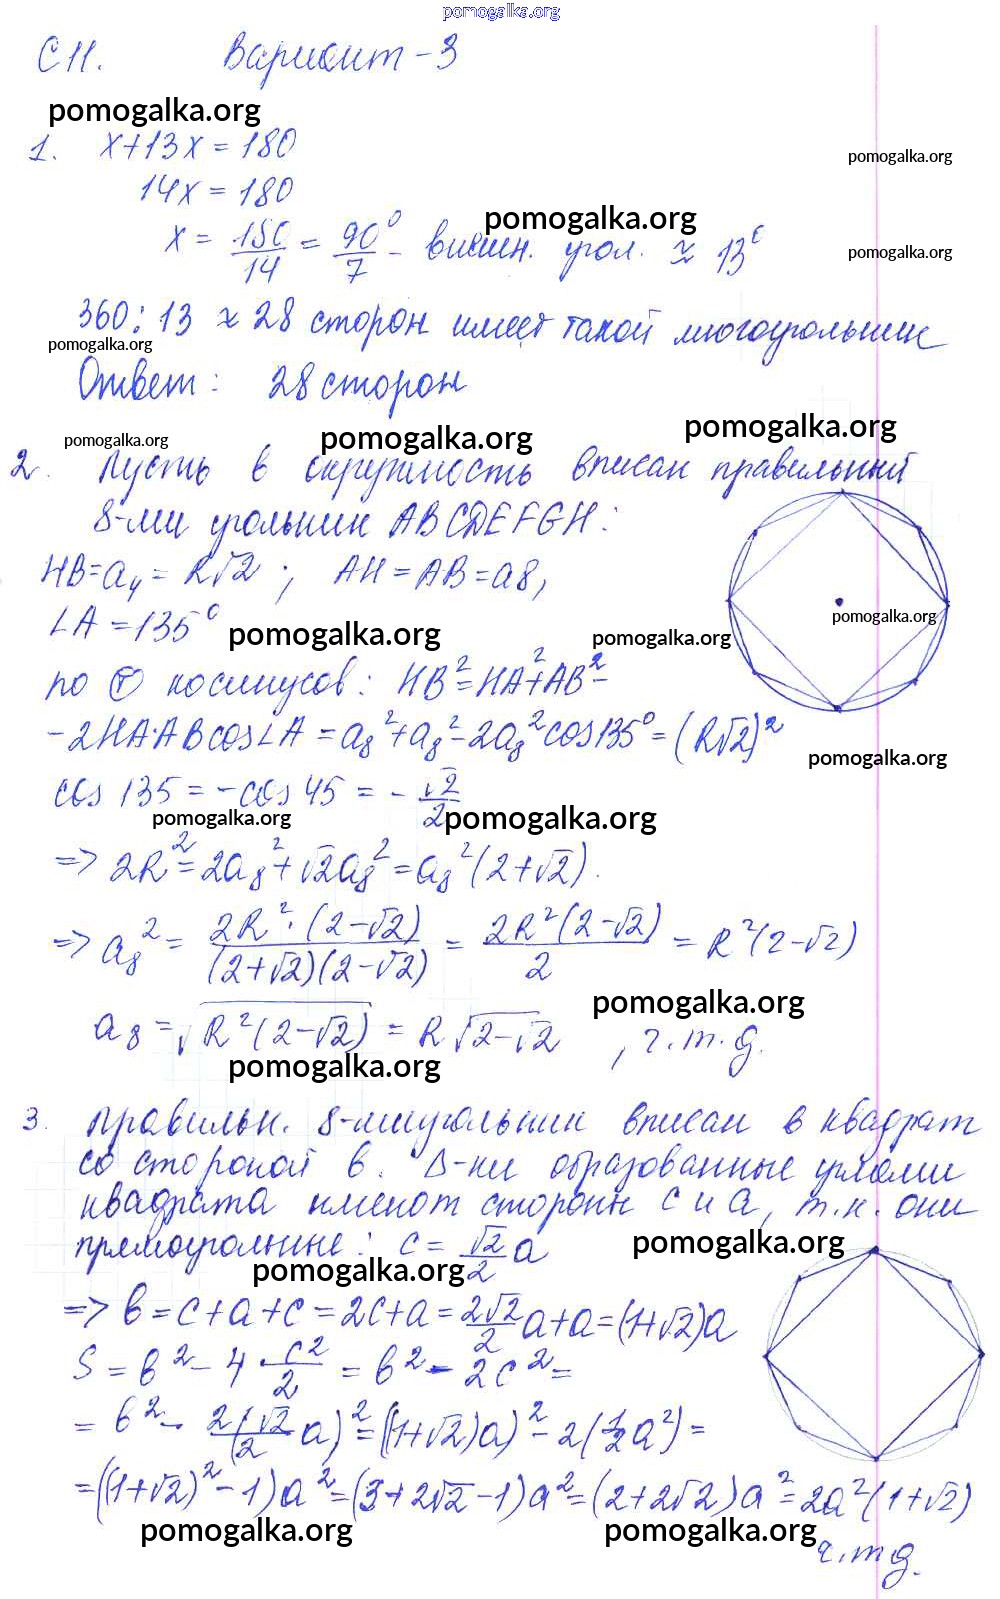 pomogalka.org
С 11. Вариант-3
pomogalka.org
1. x+13x = 180
pomogalka.org
14x = 180
pomogalka.org
x = 180/14 = 90°/7 - внешн. угол. ≈ 13°
pomogalka.org
360:13 ≈ 28 сторон имеет такой многоугольник
pomogalka.org
Ответ: 28 сторон
pomogalka.org
pomogalka.org
pomogalka.org
2. Пусть в окружность вписан правильный
8-ми угольник ABCDEFGH:
HB=a₄=R√2; AH=AB=a8,
pomogalka.org
∠A=135°
pomogalka.org
pomogalka.org
по Т косинусов: HB²=HA²+AB²-
-2HA·ABcos∠A=a₈²+a₈²-2a₈²cos135°=(R√2)²
pomogalka.org
cos 135=-cos 45=-√2/2
pomogalka.org
pomogalka.org
=> 2R²=2a₈²+√2a₈²=a₈²(2+√2).
=> a₈²=2R²·(2-√2)/(2+√2)(2-√2)=2R²(2-√2)/2=R²(2-√2)
pomogalka.org
a8=√R²(2-√2)=R√2-√2, ч.т.д.
pomogalka.org
3. Правильн. 8-миугольник вписан в квадрат
со стороной в. Δ-ки образованные углами
квадрата имеют стороны с и а, т.к. они
прямоугольные: c=√2/2 a
pomogalka.org
pomogalka.org
=> в=c+a+c=2c+a=2√2/2 a+a=(1+√2)a
S=в²-4·c²/2=в²-2c²=
=в²-2(√2/2 a)²=((1+√2)a)²-2(1/2a²)=
=((1+√2)²-1)a²=(3+2√2-1)a²=(2+2√2)a²=2a²(1+√2)
pomogalka.org
pomogalka.org
ч.т.д.